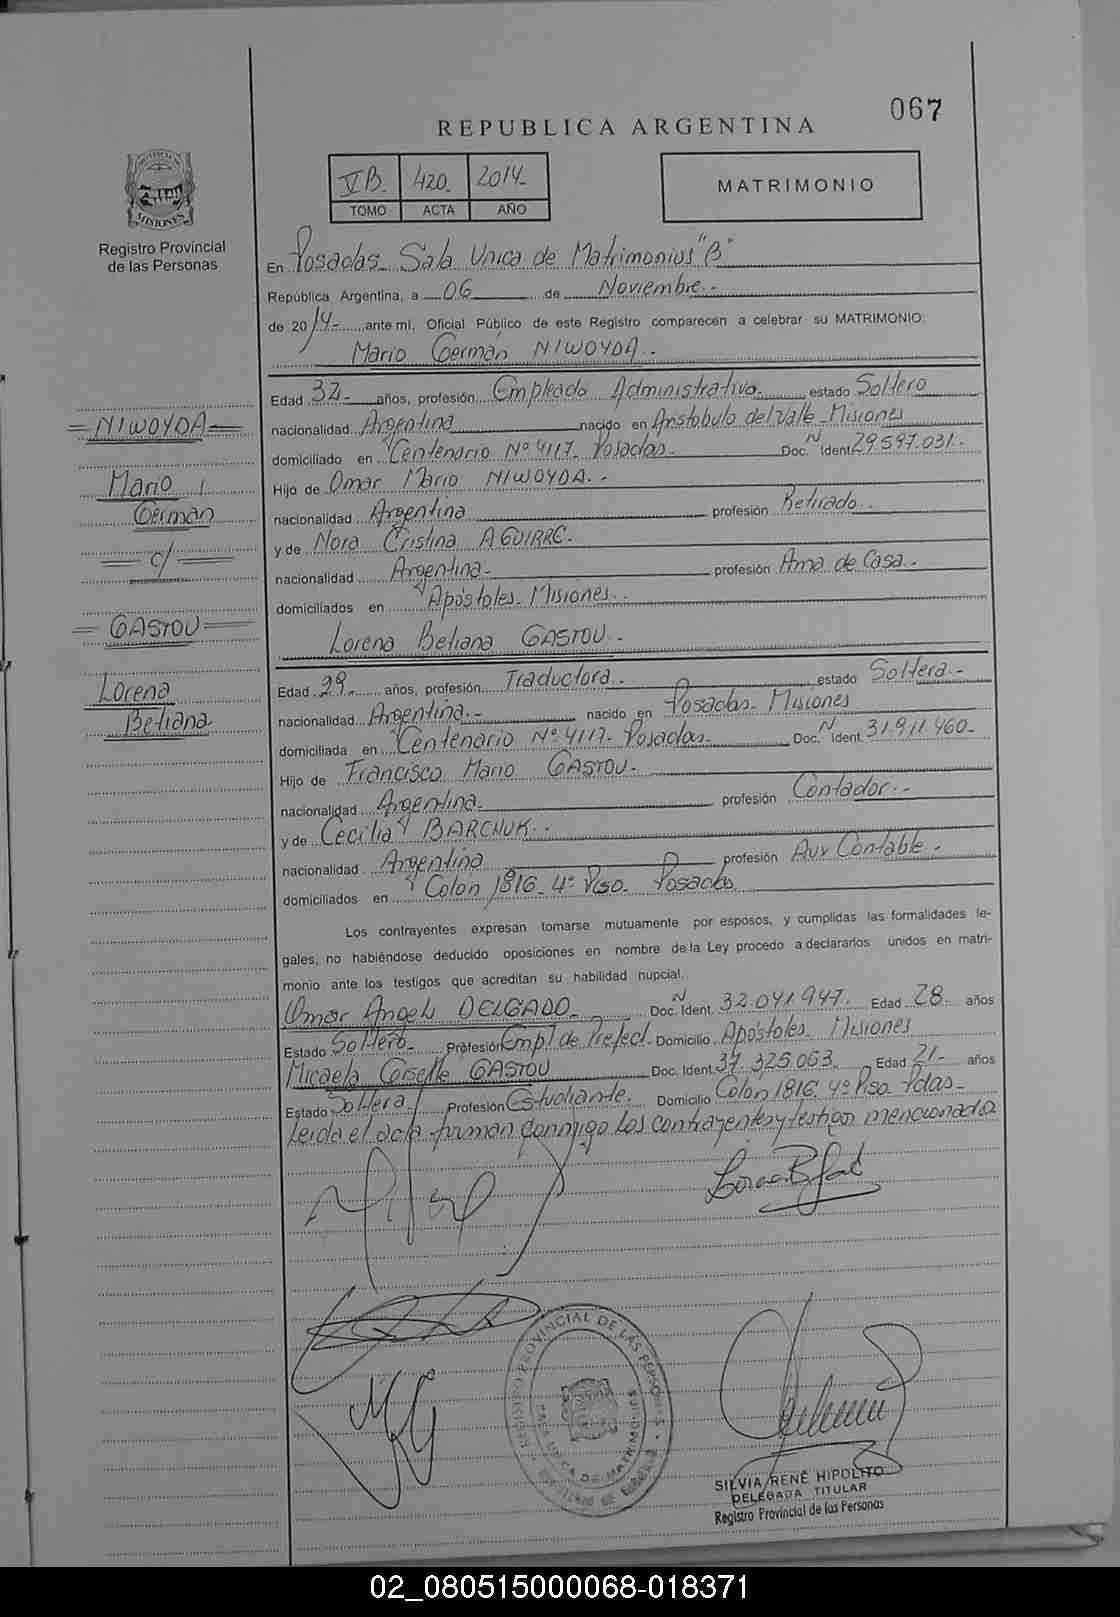 067
REPUBLICA ARGENTINA
VB. 420. 2014-
TOMO ACTA AÑO
MATRIMONIO
PROVINCIA DE MISIONES
Registro Provincial
de las Personas
En Posadas Sala Unica de Matrimonios "B"
República Argentina, a 06 de Noviembre.-
de 2014- ante mi, Oficial Público de este Registro comparecen a celebrar su MATRIMONIO:
Mario Germán NIWOYDA.-
Edad 32- años, profesión Empleado Administrativo. estado Soltero
nacionalidad Argentina nacido en Aristobulo del Valle-Misiones
domiciliado en Centenario Nº 4117. Posadas. Doc. N Ident 29.597.031.-
Hijo de Omar Mario NIWOYDA.-
nacionalidad Argentina profesión Retirado.-
y de Nora Cristina AGUIRRE.-
nacionalidad Argentina.- profesión Ama de Casa.-
domiciliados en Apóstoles-Misiones.-
Lorena Betiana GASTOU.-
Edad 29. años, profesión Traductora.- estado Soltera.-
nacionalidad Argentina.- nacido en Posadas-Misiones
domiciliada en Centenario Nº 4117- Posadas. Doc. N Ident. 31.911.460.-
Hijo de Francisco Mario GASTOU.-
nacionalidad Argentina. profesión Contador.-
y de Cecilia BARCHUK.-
nacionalidad Argentina profesión Aux Contable.-
domiciliados en Colon 1816- 4º Piso- Posadas
Los contrayentes expresan tomarse mutuamente por esposos, y cumplidas las formalidades le-
gales, no habiéndose deducido oposiciones en nombre de la Ley procedo a declararlos unidos en matri-
monio ante los testigos que acreditan su habilidad nupcial.
Omar Angel DELGADO. Doc. N Ident. 32.041.947. Edad 28 años
Estado Soltero- Profesión Empl de Prefect. Domicilio Apóstoles. Misiones
Micaela Giselle GASTOU Doc. Ident. 37.325.063. Edad 21- años
Estado Soltera Profesión Estudiante. Domicilio Colon 1816. 4º Piso. Pdas-
Leida el acta firman conmigo los contrayentes y testigos mencionados
=NIWOYDA=
Mario
Germán
c/
=GASTOU=
Lorena
Betiana
REGISTRO PROVINCIAL DE LAS PERSONAS
SALA UNICA DE MATRIMONIOS
SILVIA RENÉ HIPOLITO
DELEGADA TITULAR
Registro Provincial de las Personas
02_080515000068-018371